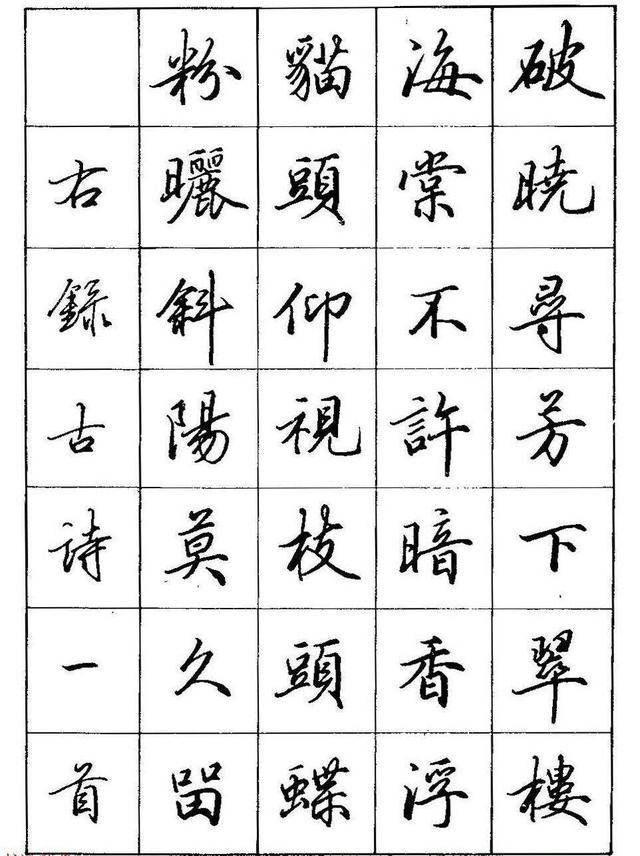 破曉尋芳下翠樓
海棠不許暗香浮
貓頭仰視枝頭蝶
粉曬斜陽莫久留
右錄古詩一首